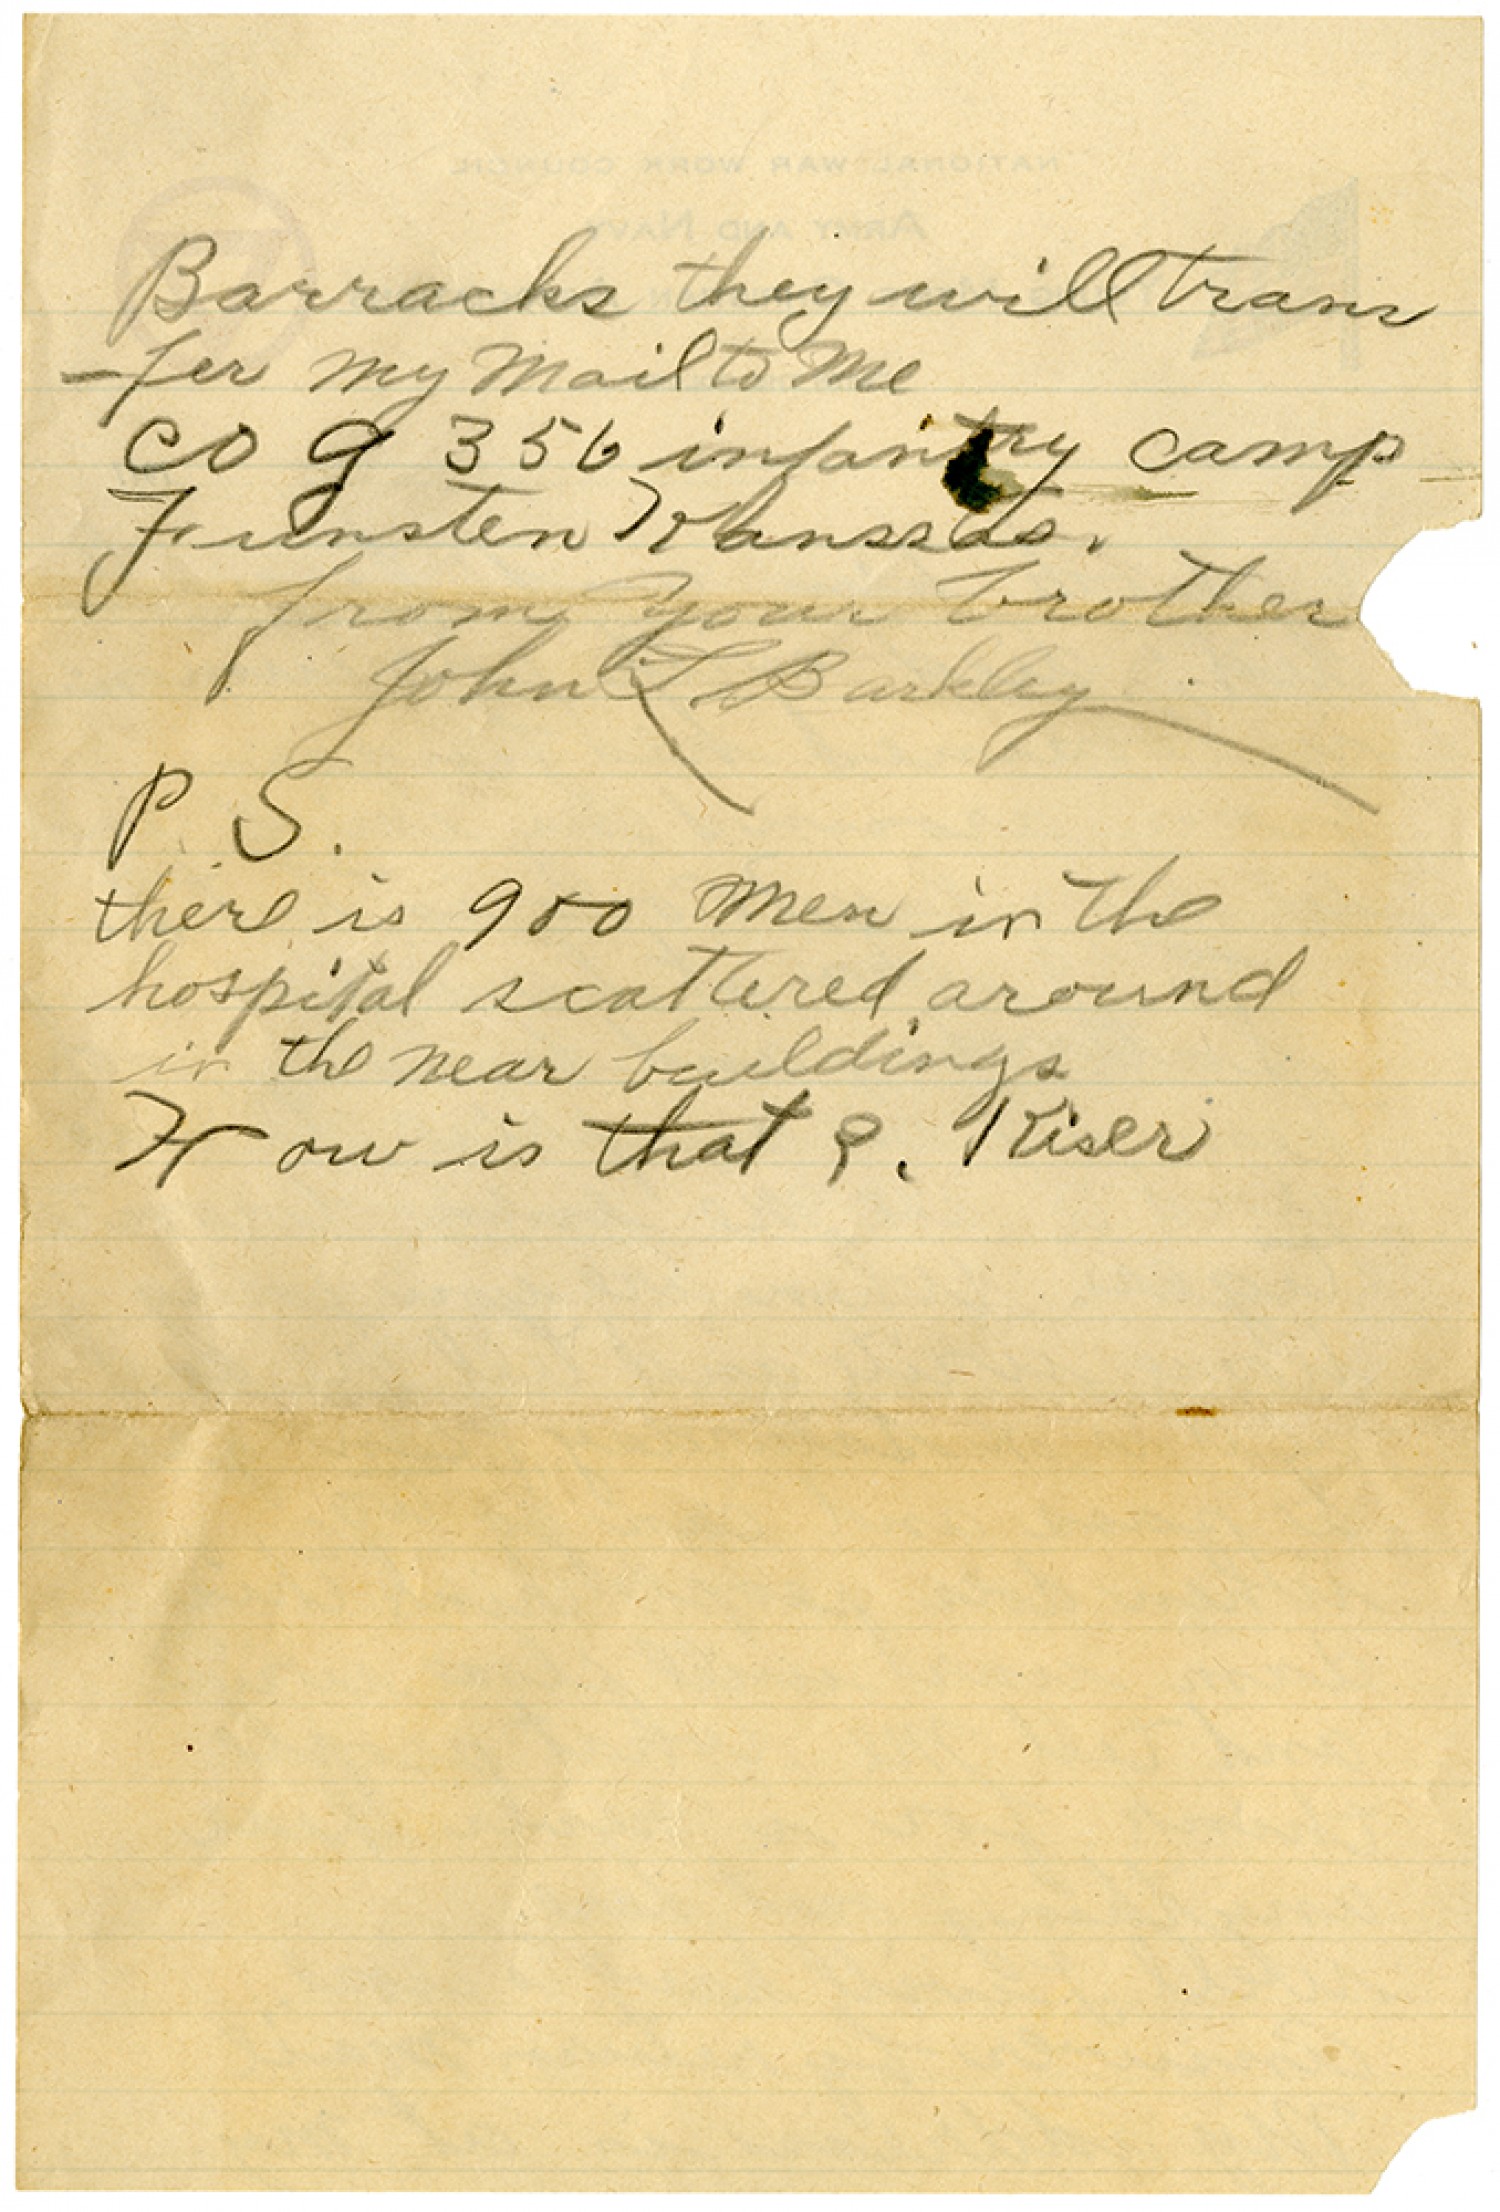 Barracks they will trans
-fer my Mail to Me
CO G 356 infantry camp
Funsten Kanssas.
from your brother
John L Barkley
P S.
there is 900 Men in the
hospital scattered around
in the near buildings
How is that ?. Kiser
NATIONAL WAR WORK COUNCIL
ARMY AND NAVY